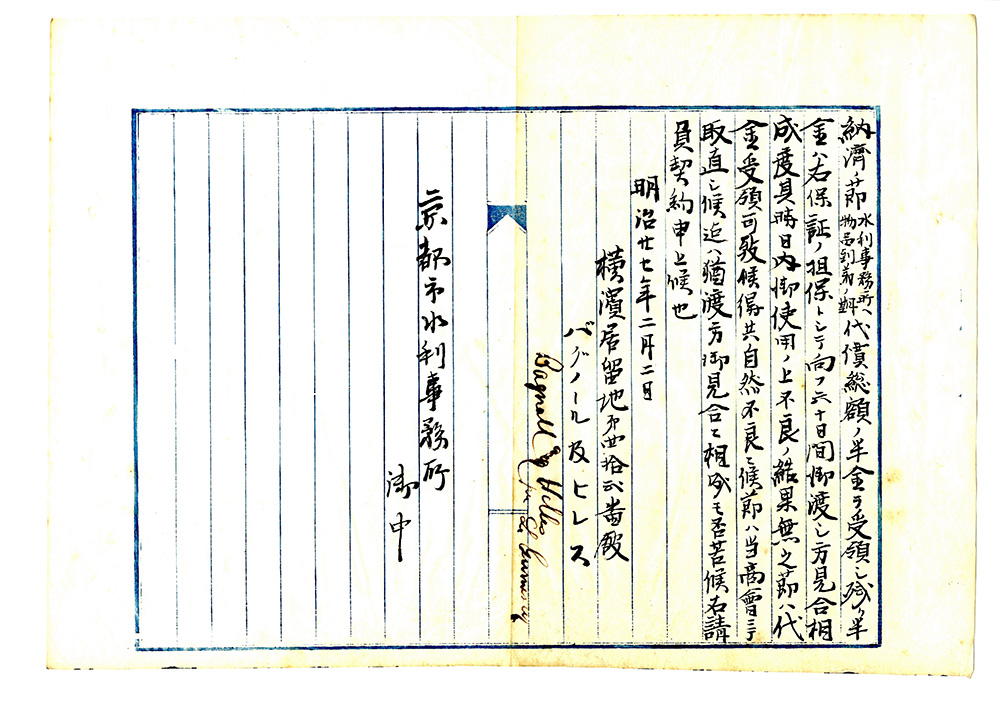 納濟ノ節水利事務所ヘ物品到着ノ節代價総額ノ半金ヲ受領シ残リ半
金ハ右保証ノ担保トシテ向フ六十日間御渡シ方見合相
成度其時日内御使用ノ上不良ノ結果無之節ハ代
金受領可致候得共自然不良ニ候節ハ当商會ニテ
取直シ候迄ハ猶渡方御見合ニ相成モ否苦候右請
負契約申上候也
明治廿七年二月二日
横濱居留地第四拾弐番館
バグノール及ヒレス
Bagnall & Hilles
京都市水利事務所
御中